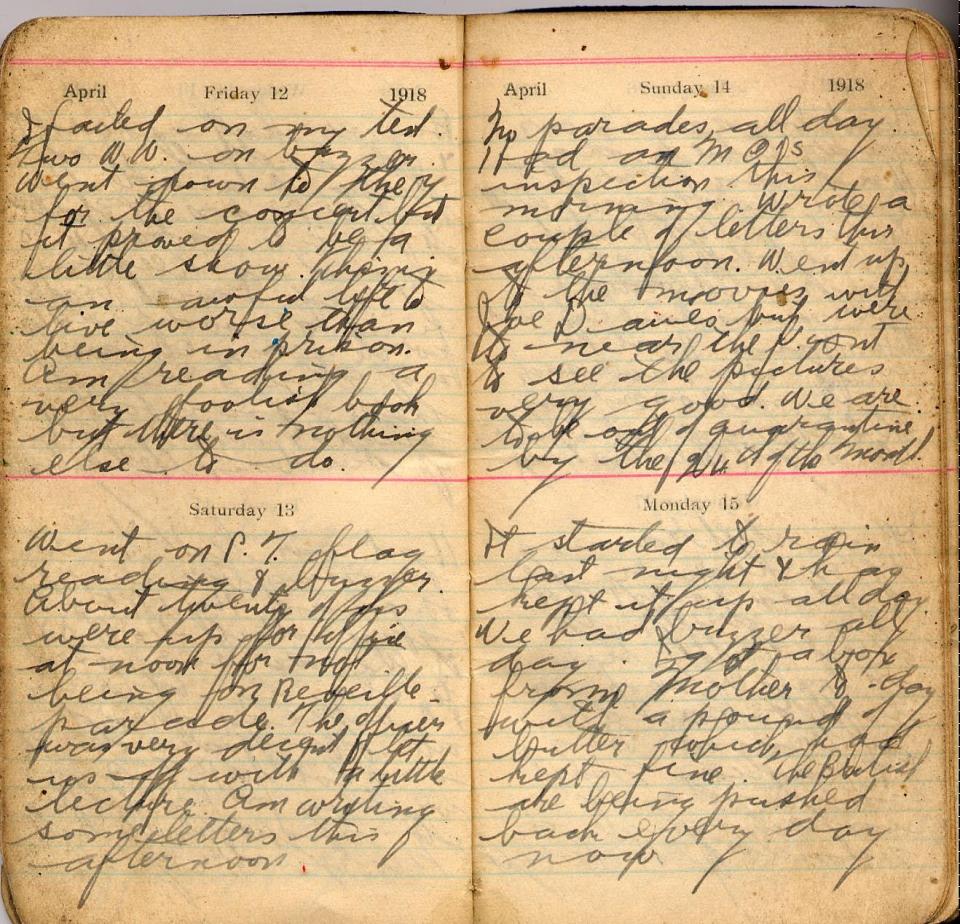 April Friday 12 1918
I failed on my test.
Two W.W. on buzzer.
Went down to the Y
for the concert but
it proved to be a
little show. This is
an awful life to
live worse than
being in prison.
Am reading a
very foolish book
but there is nothing
else to do.
Saturday 13
Went on P. T. flag
reading & buzzer.
About twenty of us
were up for office
at noon for not
being on Reveille
parade. The officer
was very decent & let
us off with a little
lecture. Am writing
some letters this
afternoon
April Sunday 14 1918
No parades all day.
Had an M O's
inspection this
morning. Wrote a
couple of letters this
afternoon. Went up
to the movies with
Joe Dawes but were
to near the front
to see the pictures
very good. We are
to be out of quarantine
by the of the month.
Monday 15
It started to rain
last night & has
kept it up all day.
We had buzzer all
day. I got a box
from Mother to-day
with a pound of
butter which had
kept fine. The British
are being pushed
back every day
now